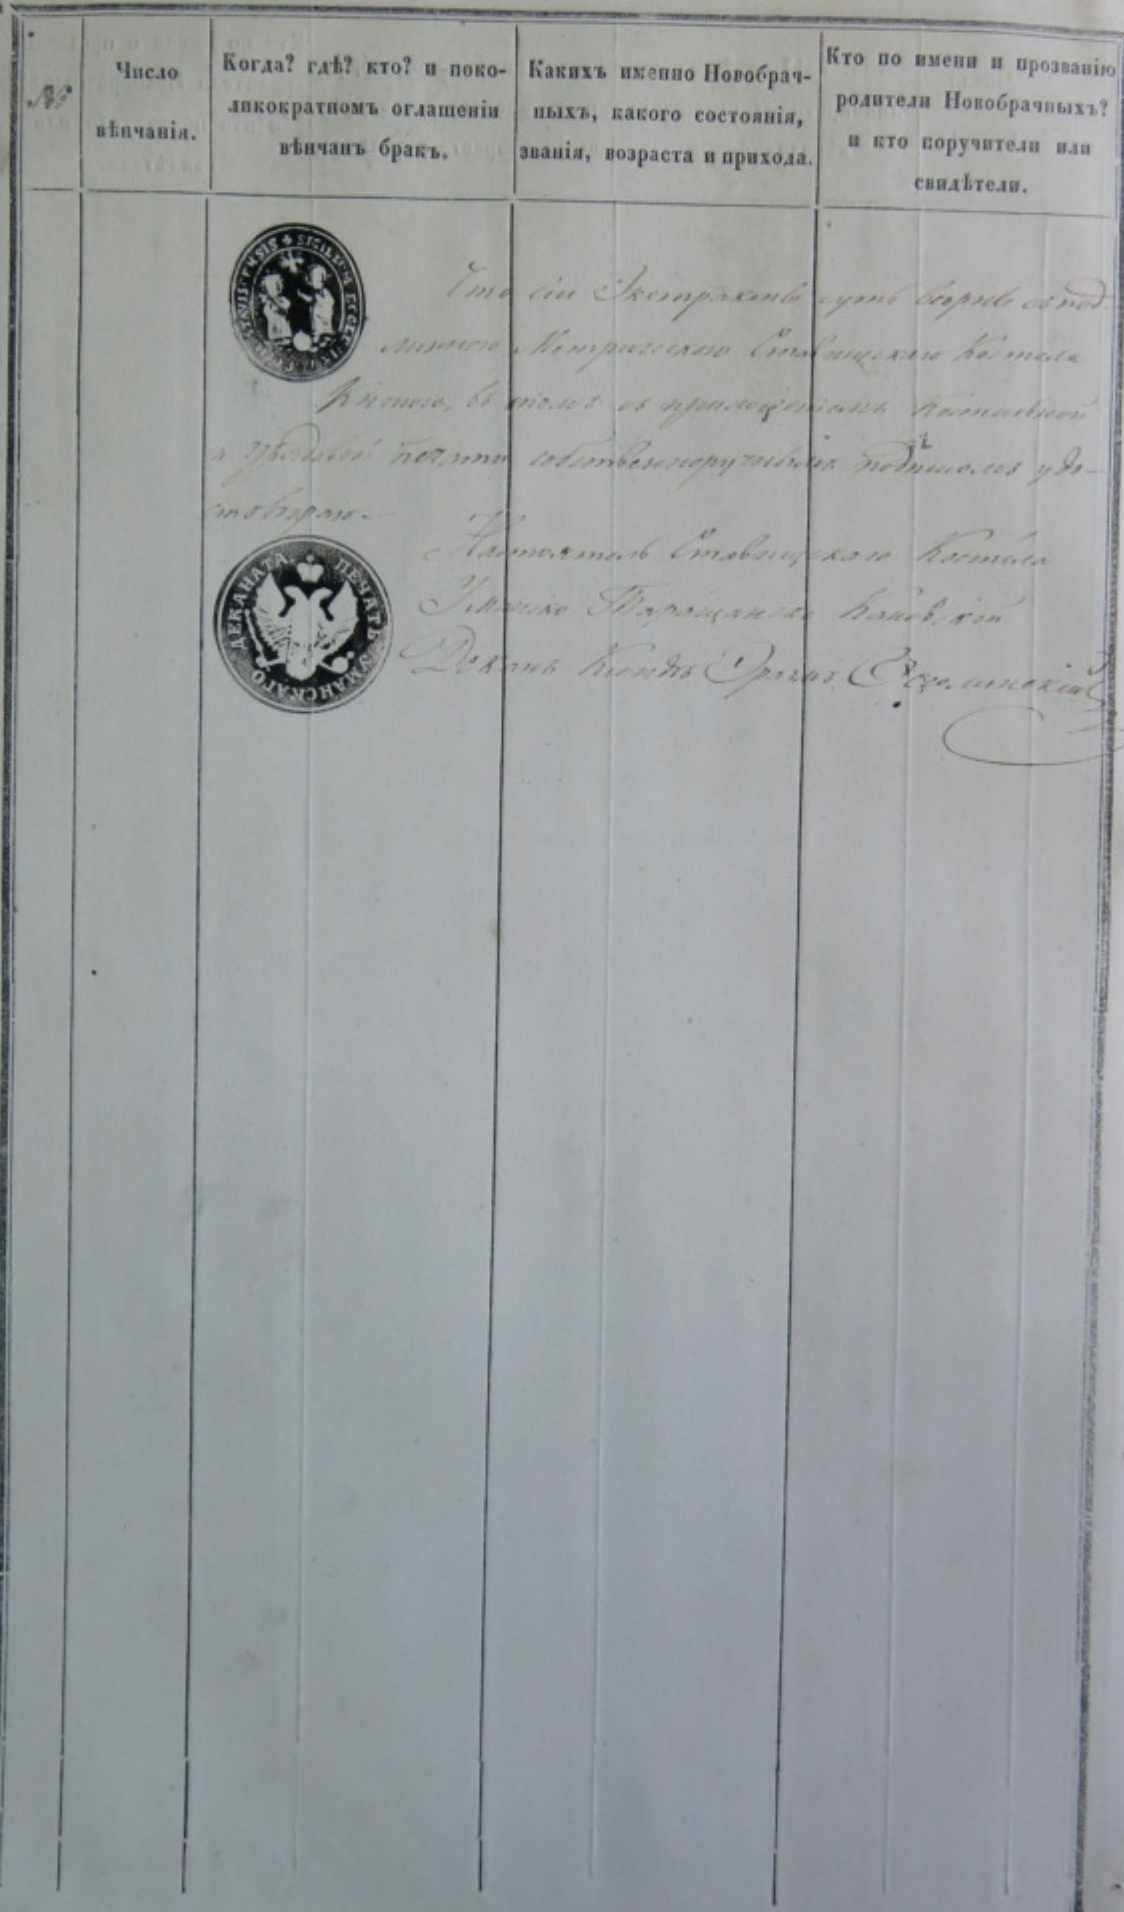 №
Число
вѣнчанія.
Когда? гдѣ? кто? и поко-
ликократномъ оглашеніи
вѣнчанъ бракъ.
Какихъ именно Новобрач-
ныхъ, какого состоянія,
званія, возраста и прихода.
Кто по имени и прозванію
родители Новобрачныхъ?
и кто поручители или
свидѣтели.
SIGILLUM
Что сіи Экстракты суть вѣрны съ под-
линною Метрическою Ставищскаго Костела
Книгою, въ томъ съ приложеніемъ Костельной
и печати собственноручнымъ подписомъ удо-
стовѣряю.
ПЕЧАТЬ УМАНСКАГО ДЕКАНАТА
Настоятель Ставищскаго Костела
Уманско Таращанско Каневскій
Деканъ Ксендзъ